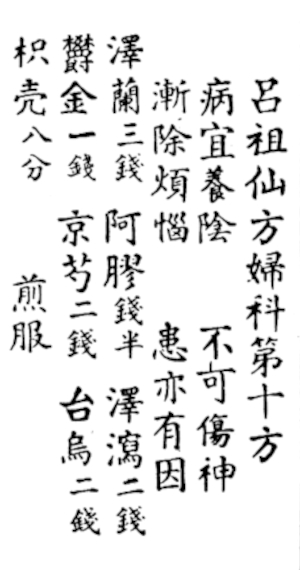 呂祖仙方婦科第十方
病宜養陰　不可傷神
漸除煩惱　患亦有因
澤蘭三錢　阿膠錢半　澤瀉二錢
欝金一錢　京芍二錢　台烏二錢
枳壳八分　煎服